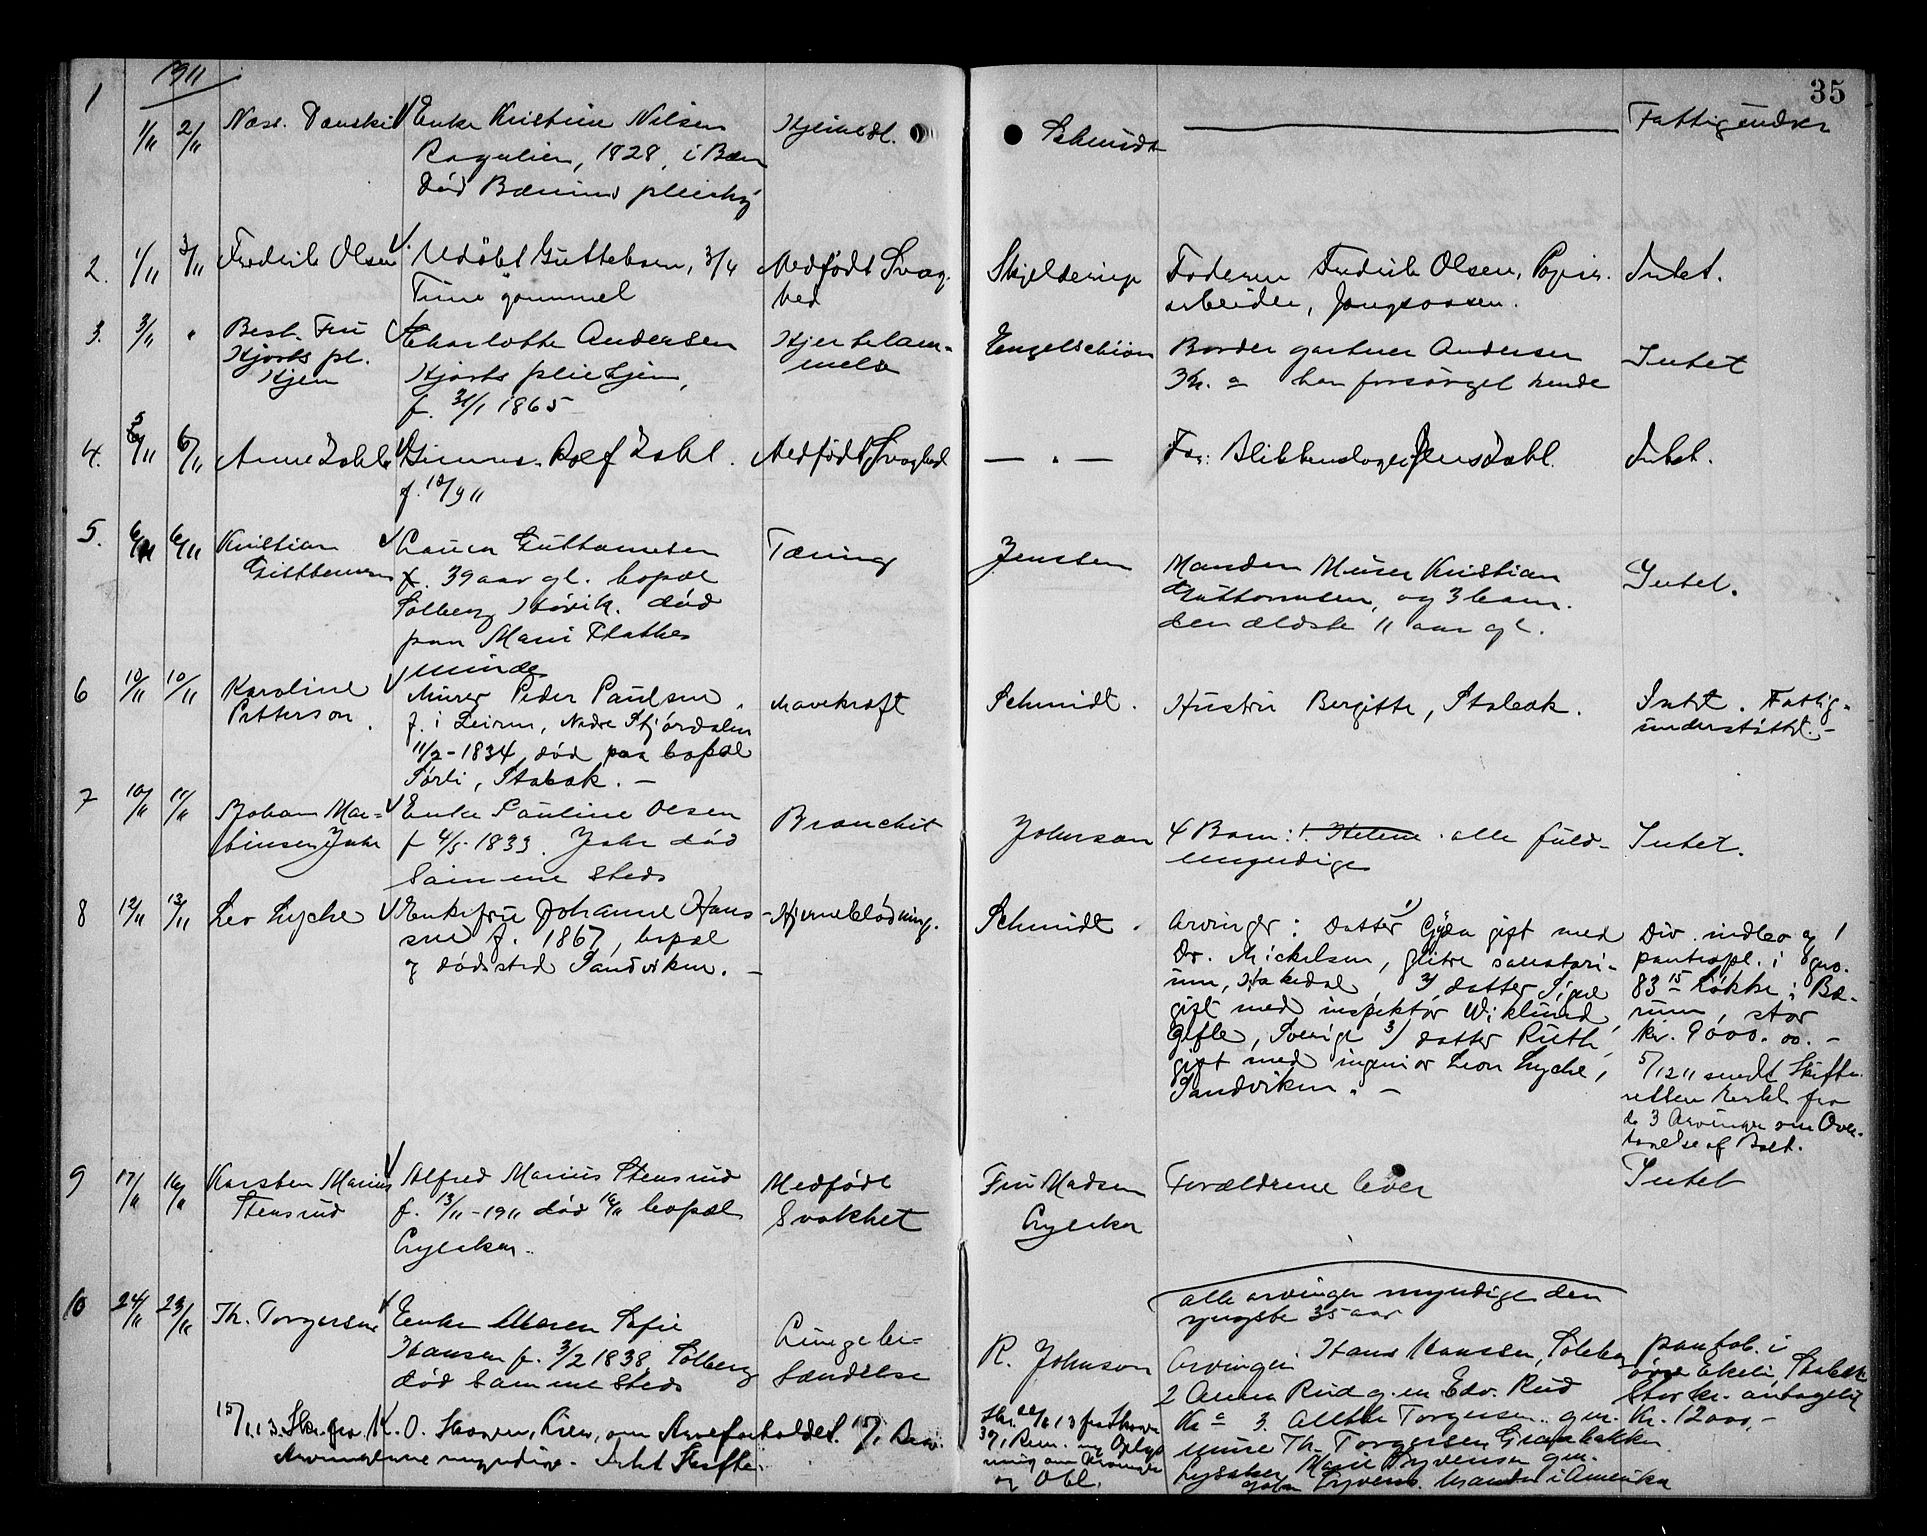 35
1911
1
1/11 2/11
Enke Kristine Nilsen
1828, i Bær
Død Bærums pleiehj
Schmidt
2. 1/11 3/11
Fredrik Olsen
Udøbt Guttebarn, 3/4
Time gammel
Medfødt Svag-
hed
Skjelderup
Faderen Fredrik Olsen, Papir-
arbeider,
Intet.
3. 3/11 "
Best. Fru
Hjorts pl.
Hjem
Charlotte Andersen
Hjorts pleiehjem,
f. 31/1 1865
Engelschiøn
Broder gartner Andersen
har forsørget hende
Intet
4. 6/11
Rolf Dahl.
f. 10/9 11
Medfødt Svaghed
— " —
Far: Blikkenslager Jens Dahl.
Intet.
5. 6/11 6/11
Kristian
Guttormsen
Laura Guttormsen
f. 39 aar gl. bopæl
Solberg Høvik. død
paa Marie Plathes
minde
Tæring
Jensen
Manden Murer Kristian
Guttormsen, og 3 barn.
den ældste 11 aar gl.
Intet.
6 10/11 10/11
Karoline
Petterson.
Murer Peder Paulsen,
f. i Leiren, Nedre Stjørdalen
11/2-1834, død paa bopæl
Sørli, Stabæk. —
Mavekræft
Schmidt.
Hustru Bergitte, Stabæk.
Intet. Fattig-
understøttet. —
7 10/11 11/11
Johan Mar-
tinsen Jahr
Enke Pauline Olsen
f 4/5-1833. Jahr død
samme Sted
Bronchit
Johnson
4 Barn: 1. Helene. alle fuld-
myndige
Intet.
8 12/11 13/11
Leo Lyche
Enkefru Johanne Han-
sen f. 1867, bopæl
og dødssted Sandviken. —
Hjerneblødning.
Schmidt.
Arvinger: 1) Datter Gyda gift med
Dr. Mickelsen, Glitre sanatori-
um, Hakedal, 2) datter Signe
gift med inspektør Wiklund,
Gefle, Sverige 3) datter Ruth,
gift med ingeniør Leon Lyche,
Sandviken. —
Div. indbo og 1
panteobl. i gno.
83 15 Løkke i Bæ-
rum, stor
kr. 9000.00. —
5/12 11 sendt Skifte-
retten Erkl. fra
de 3 Arvinger om Over-
tagelse af Boet.
9 17/11 16/11
Karsten Marius
Stensrud
Alfred Marius Stensrud
f. 13/11-1911 død 16/11 bopæl
Lysaker.
Medfødt
Svakhet
Fru Madsen
Lysaker
Forældrene lever
Intet
10 24/11 23/11
Th. Torgersen
Enke Maren Sofie
Hansen f. 3/2 1838, Solberg
død samme Sted
Lungebe-
tændelse
R. Johnson
alle arvinger myndige den
yngste 35 aar
Arvinger: Hans Hanssen, Solberg
2 Anna Rud g. m Edv. Rud
3. Torgersen g.m.
Th. Torgersen Granbakken
Lysaker, i Amerika
pantob. i
Ekeli, Stabæk
Stor kr. antagelig
Kr. 12000,—
15/1 13. Skr. fra K. O. om Arveforholdet.
Arvingerne myndige. Intet Skifte.
og Obl.